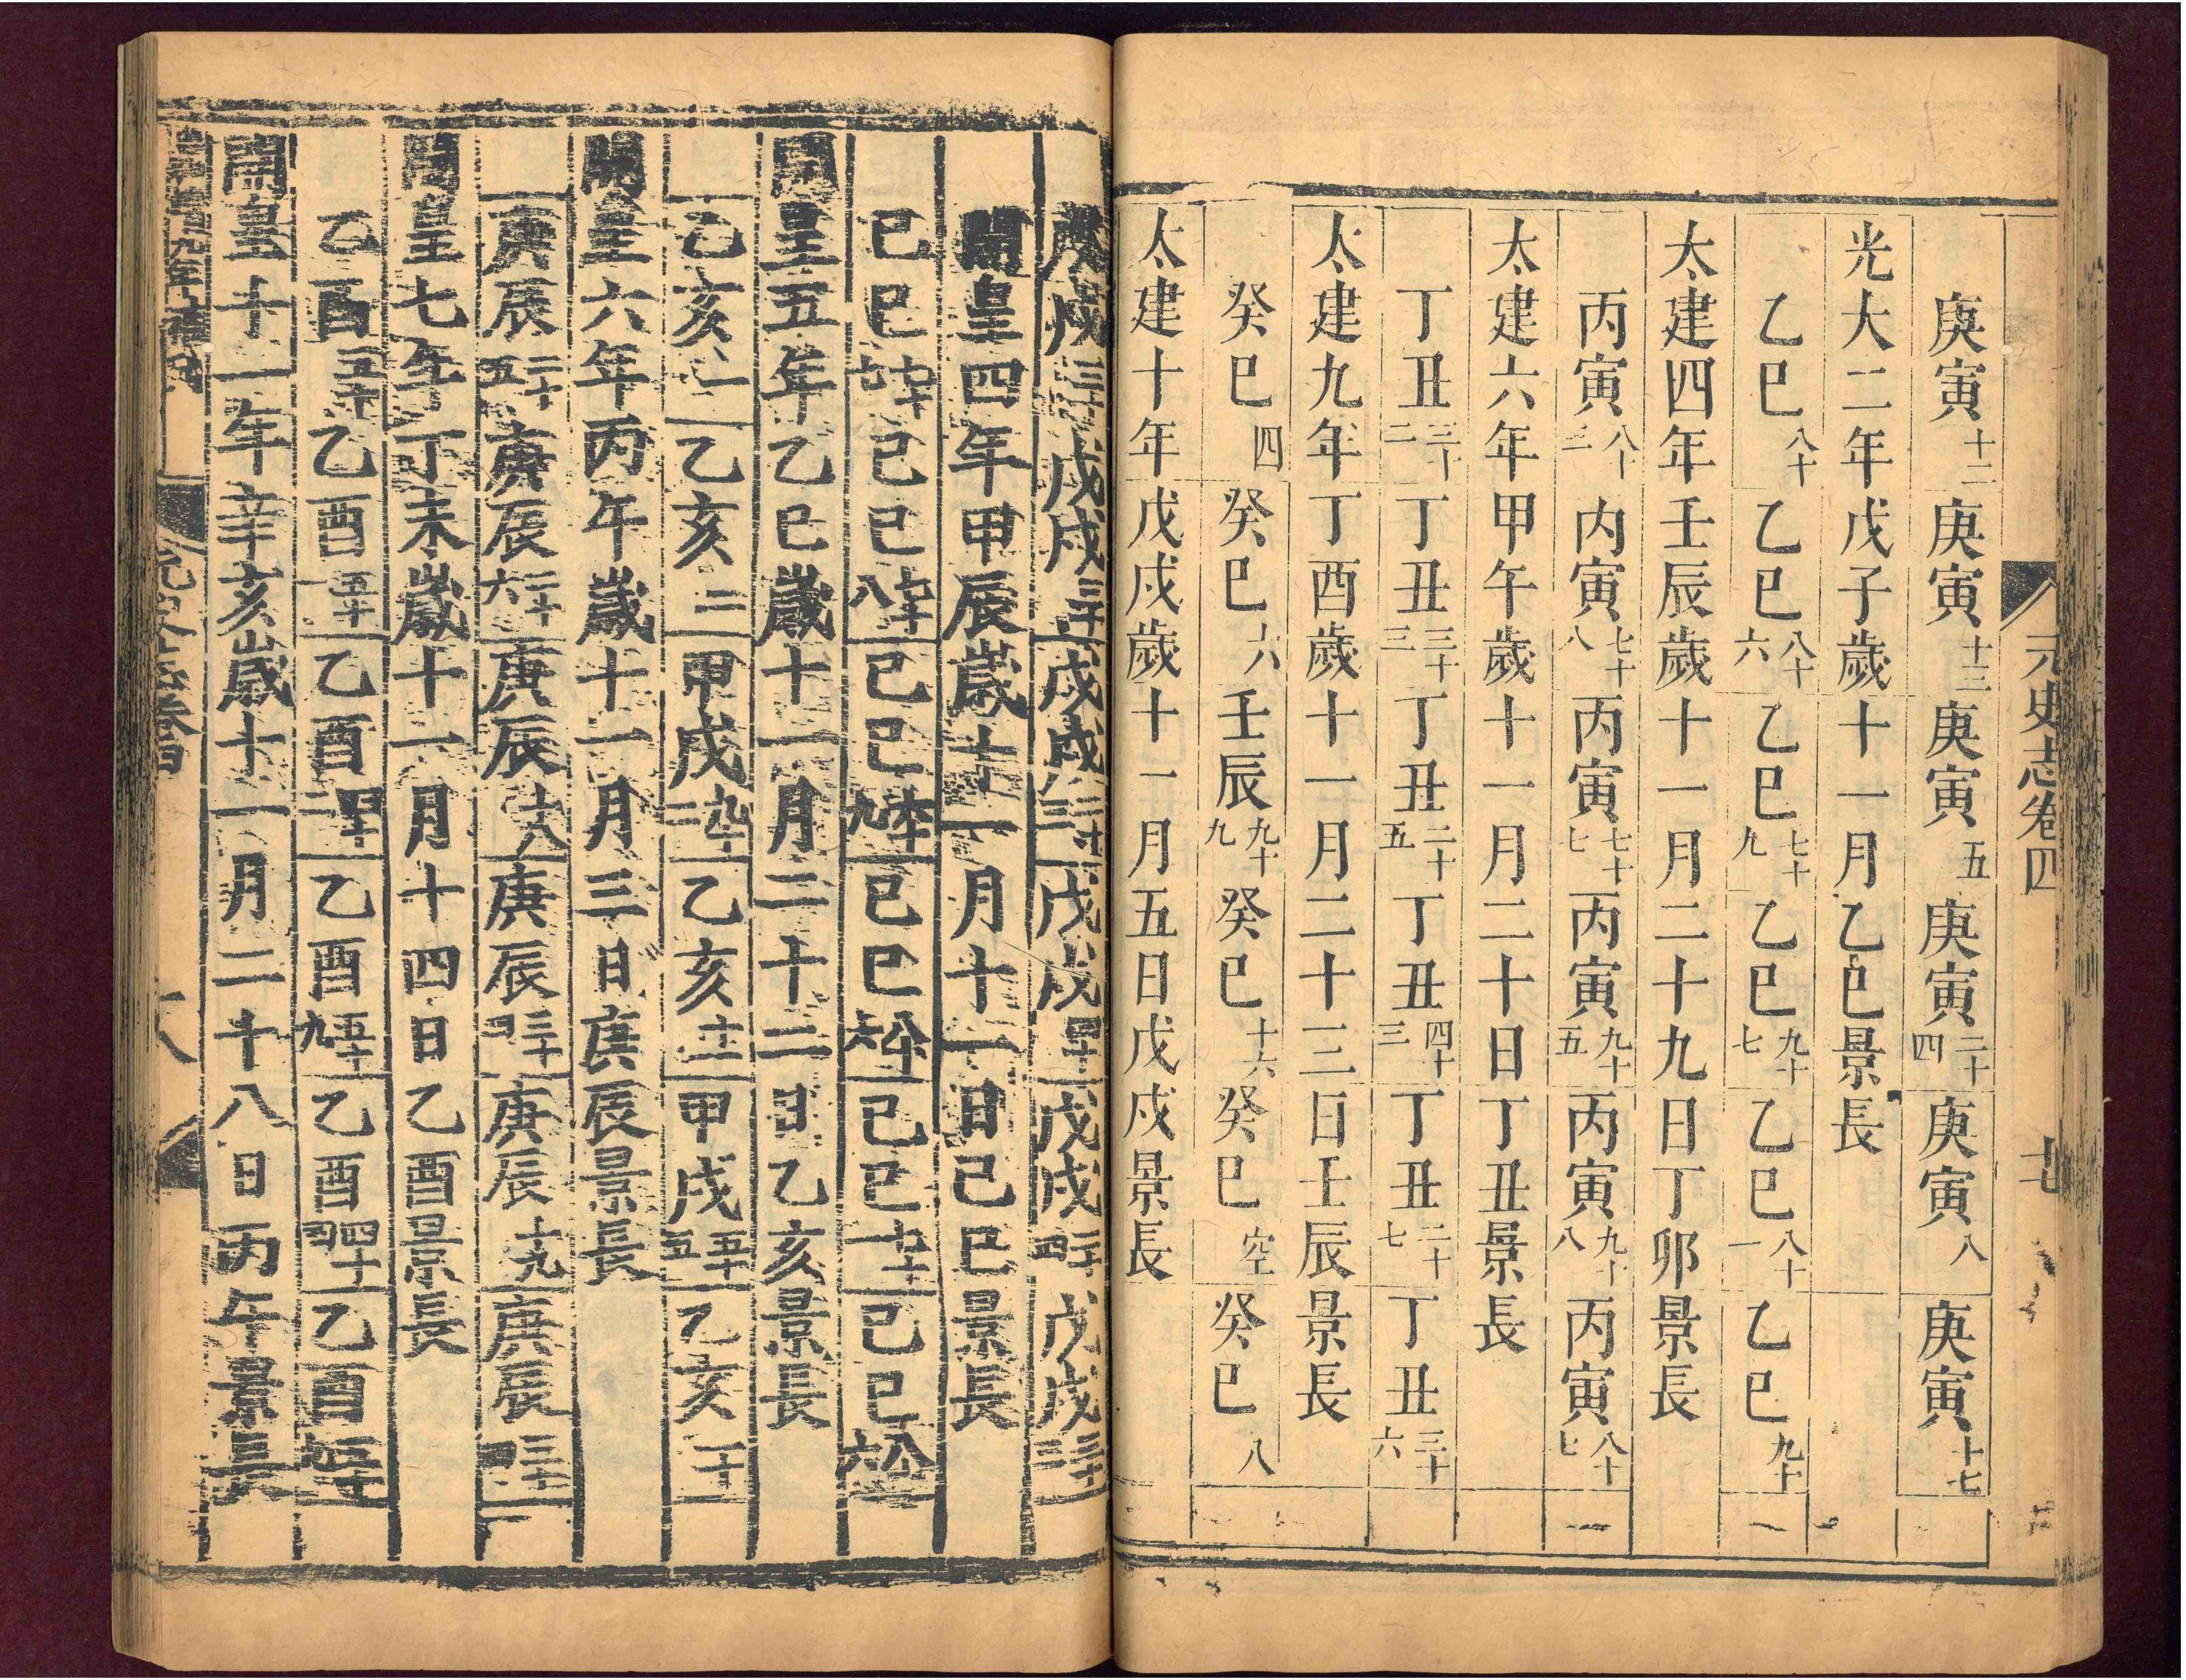 元史志卷四
七
庚寅十二 庚寅十三 庚寅五 庚寅二十四 庚寅八 庚寅十七
光大二年戊子歲十一月乙巳景長
乙巳八十 乙巳八十六 乙巳七十九 乙巳九十七 乙巳八十一 乙巳九十
太建四年壬辰歲十一月二十九日丁卯景長
丙寅八十二 丙寅七十八 丙寅七十七 丙寅九十五 丙寅九十八 丙寅八十七
太建六年甲午歲十一月二十日丁丑景長
丁丑三十二 丁丑三十三 丁丑二十五 丁丑四十三 丁丑二十七 丁丑三十六
太建九年丁酉歲十一月二十三日壬辰景長
癸巳四 癸巳六 壬辰九十九 癸巳十六 癸巳空 癸巳八
太建十年戊戌歲十一月五日戊戌景長
戊戌 戊戌 戊戌 戊戌 戊戌 戊戌
開皇四年甲辰歲十一月十一日己巳景長
己巳 己巳 己巳 己巳 己巳 己巳
開皇五年乙巳歲十一月二十二日乙亥景長
乙亥一 乙亥二 甲戌九十二 乙亥十二 甲戌五十五 乙亥二十
開皇六年丙午歲十一月三日庚辰景長
庚辰二十五 庚辰二十六 庚辰十八 庚辰三十四 庚辰十九 庚辰三十四
開皇七年丁未歲十一月十四日乙酉景長
乙酉五十 乙酉五十一 乙酉四十二 乙酉五十九 乙酉四十四 乙酉
開皇十一年辛亥歲十一月二十八日丙午景長
八